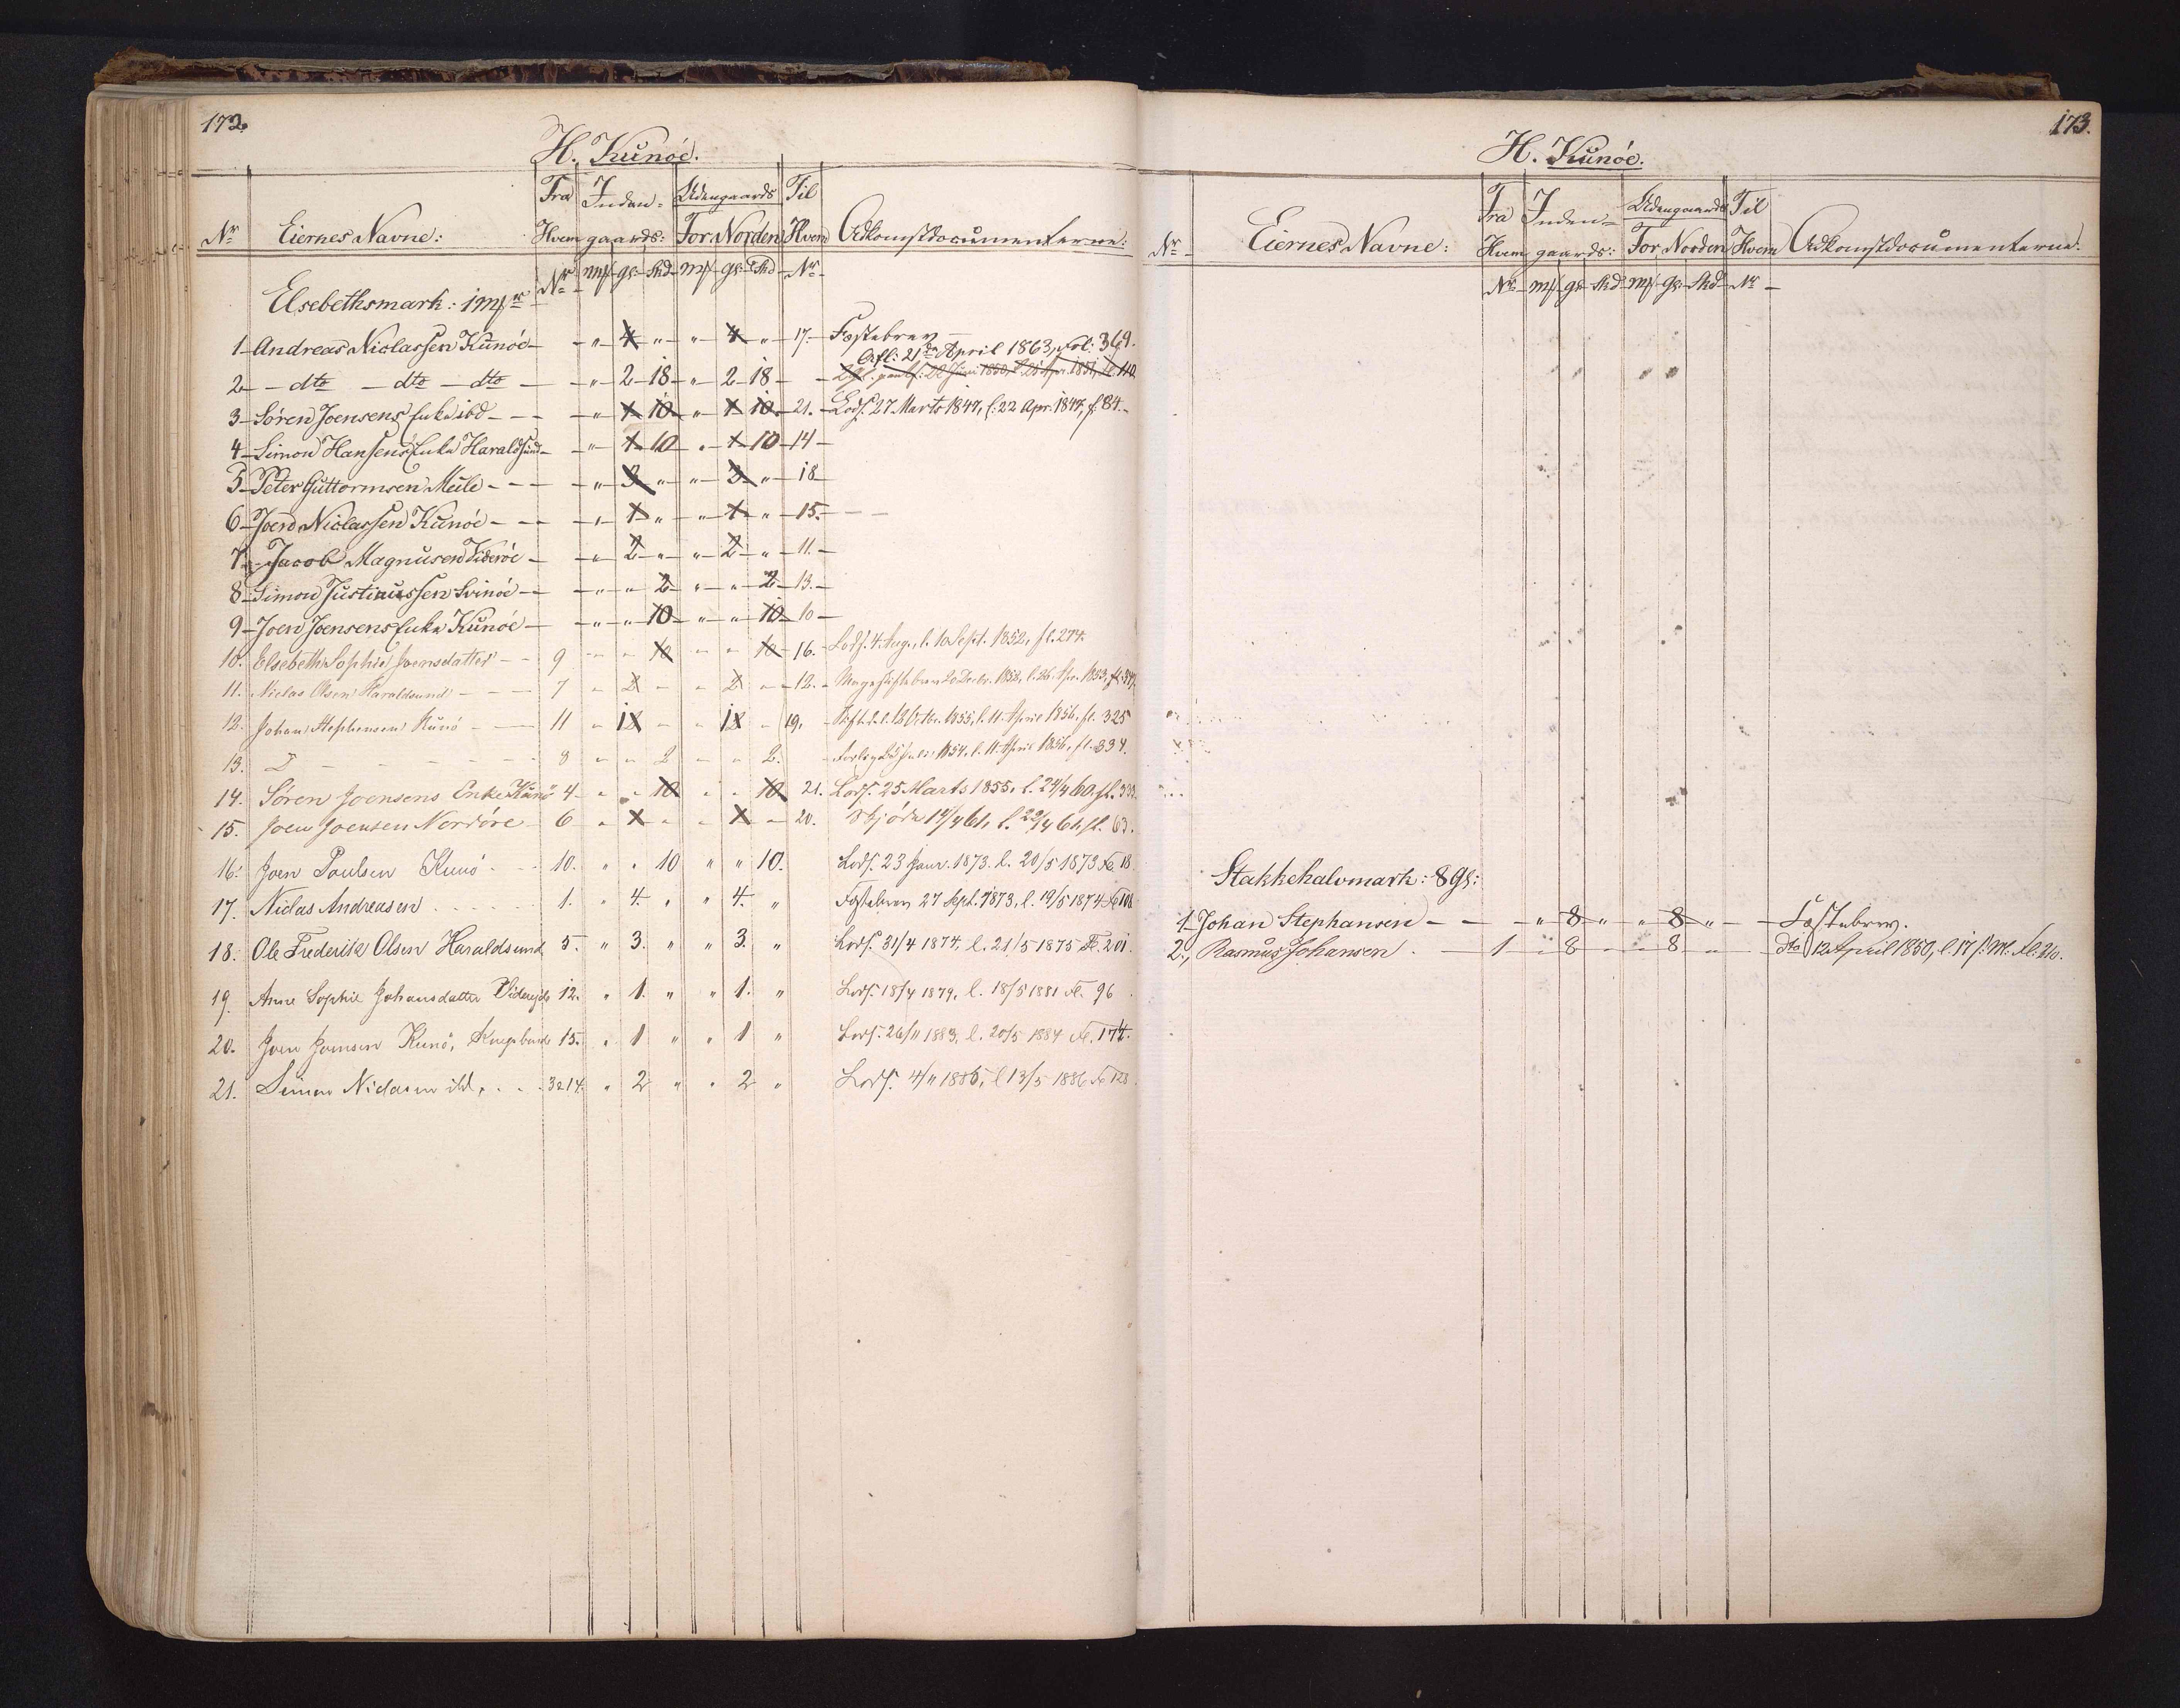 172.
H. Kunöe.
Nr Eiernes Navne: Fra Hvem Inden-gaards: Udengaards For Norden Til Hvem Adkomstdocumenterne:
Nr mk gl. Skd mk gl. Skd Nr
Elsebethsmark: 1 mk
1 Andreas Niclassen Kunöe " 4 " " 4 " 17. Fæstebrev
Afl: 21de April 1863, Fol: 369.
2 dto dto dto " 2 18 " 2 18 22 Juni 1850, 1851, fl. 110.
3 Sören Joensens Enke ibd " 1 10 " 1 10 21. Lods. 27 Marts 1847, l: 22 Apr. 1847, f: 84.
4 Simon Hansens Enke Haraldsund " 1 10 " 1 10 14
5 Peter Guttormsen Meile " 3 " " 3 " 18
6 Joen Niclassen Kunöe " 1 " " 1 " 15.
7 Jacob Magnusen Videröe " 2 " " 2 " 11.
8 Simon Justinussen Svinöe " " 2 " " 2 13.
9 Joen Joensens Enke Kunöe " " 10 " " 10 10
10. Elsebeth Sophie Joensdatter 9 " " 10 " " 10 16. Lods. 4 Aug., l. 10 Sept. 1852, fl. 274.
11. Niclas Olsen Haraldsund 7 " 2 " " 2 " 12. Mageskiftebrev 20 Decbr. 1852, l. 26. Apr. 1853, fl. 347.
12. Johan Stephensen Kunö 11 " 1 " " 1 " 19. 18 Octbr. 1855, l. 11. April 1856, fl. 325
13. D 8 " " 2 " " 2. 1854, l. 11. April 1856, fl. 334.
14. Sören Joensens Enke Kunö 4 " " 10 " " 10 21. Lods. 25 Marts 1855, l. 24/4 60. fl. 333.
15. Joen Joensen Nordöre 6 " 1 " " 1 " 20. Skjöde 17/4 61, l. 22/4 61. fl. 63.
16. Joen Poulsen Kunö 10. " " 10 " " 10. Lods. 23 Janr. 1873. l. 20/5 1873 Fl. 18.
17. Niclas Andreasen 1. " 4. " " 4. " Fæstebrev 27 Sept. 1873, l. 19/5 1874 Fl 108
18. Ole Frederik Olsen Haraldsund 5. " 3. " " 3. " Lods. 31/4 1874, l. 21/5 1875 Fl. 201.
19. Anne Sophie Johansdatter 12. " 1. " " 1. " Lods. 18/4 1879, l. 18/5 1881 Fl. 96
20. Joen Joensen Kunö, Kongsbonde 15. " 1 " " 1 " Lods. 26/11 1883, l. 20/5 1884 Fl. 174.
21. Simon Niclasen ibd. 3 & 14. " 2 " " 2 " Lods. 4/11 1885, l 13/5 1886 Fo 128.
173.
H. Kunöe.
Nr Eiernes Navne: Fra Hvem Inden-gaards: Udengaards For Norden Til Hvem Adkomstdocumenterne:
Nr mk gl Skd mk gl. Skd Nr
Stakkehalvmark: 8 Gl:
1 Johan Stephansen " 8 " " 8 " Fæstebrev.
2., Rasmus Johansen 1 " 8 " " 8 " dto 12 April 1850, l. 17 s. M. fl. 210.